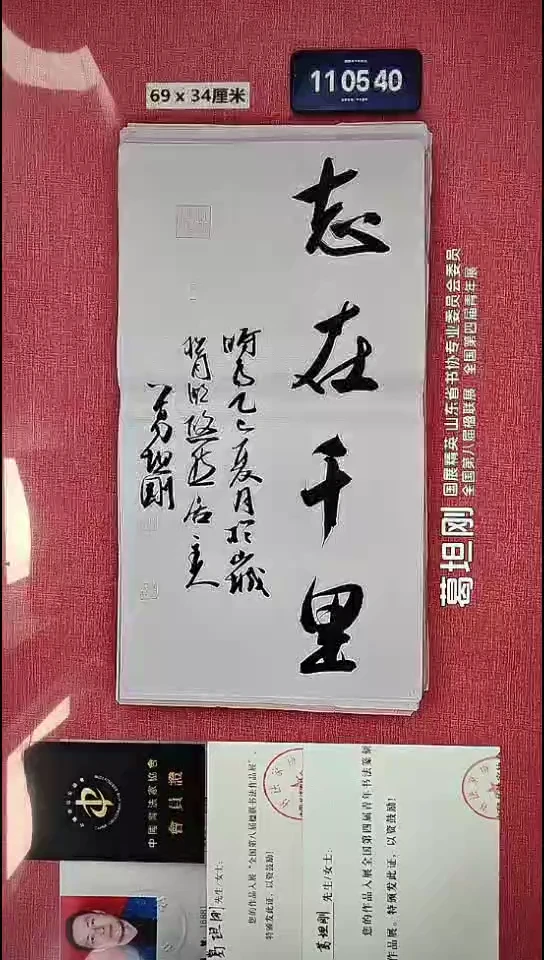 69 x 34厘米
11 05 40
志在千里
时为乙巳夏月于
葛坦刚
葛坦刚
国展精英 山东省书协专业委员会委员
全国第八届楹联展 全国第四届青年展
中国书法家协会
会员证
葛坦刚 先生/女士：
您的作品入展“全国第八届楹联书法作品展”，
特颁发此证，以资鼓励！
葛坦刚 先生/女士：
您的作品入展全国第四届青年书法篆刻
作品展，特颁发此证，以资鼓励！